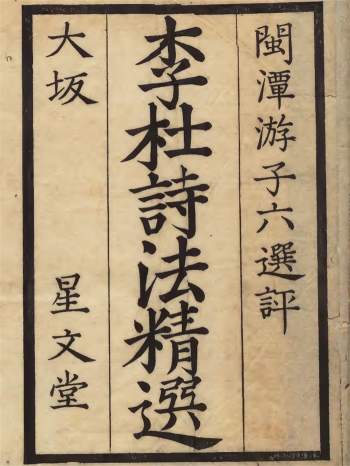 閩潭游子六選評
李杜詩法精選
大坂 星文堂